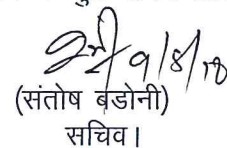 9/8/18
(संतोष बडोनी)
सचिव।